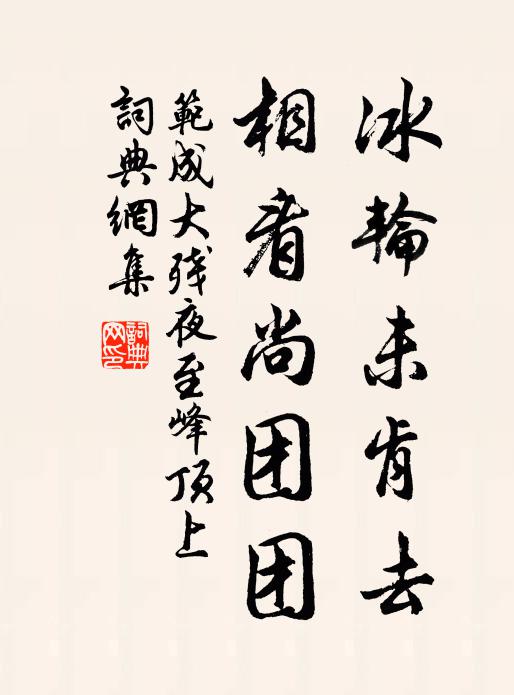 冰輪未肯去
相看尚团团
範成大残夜至峰顶上
詞典網集
詞典網印